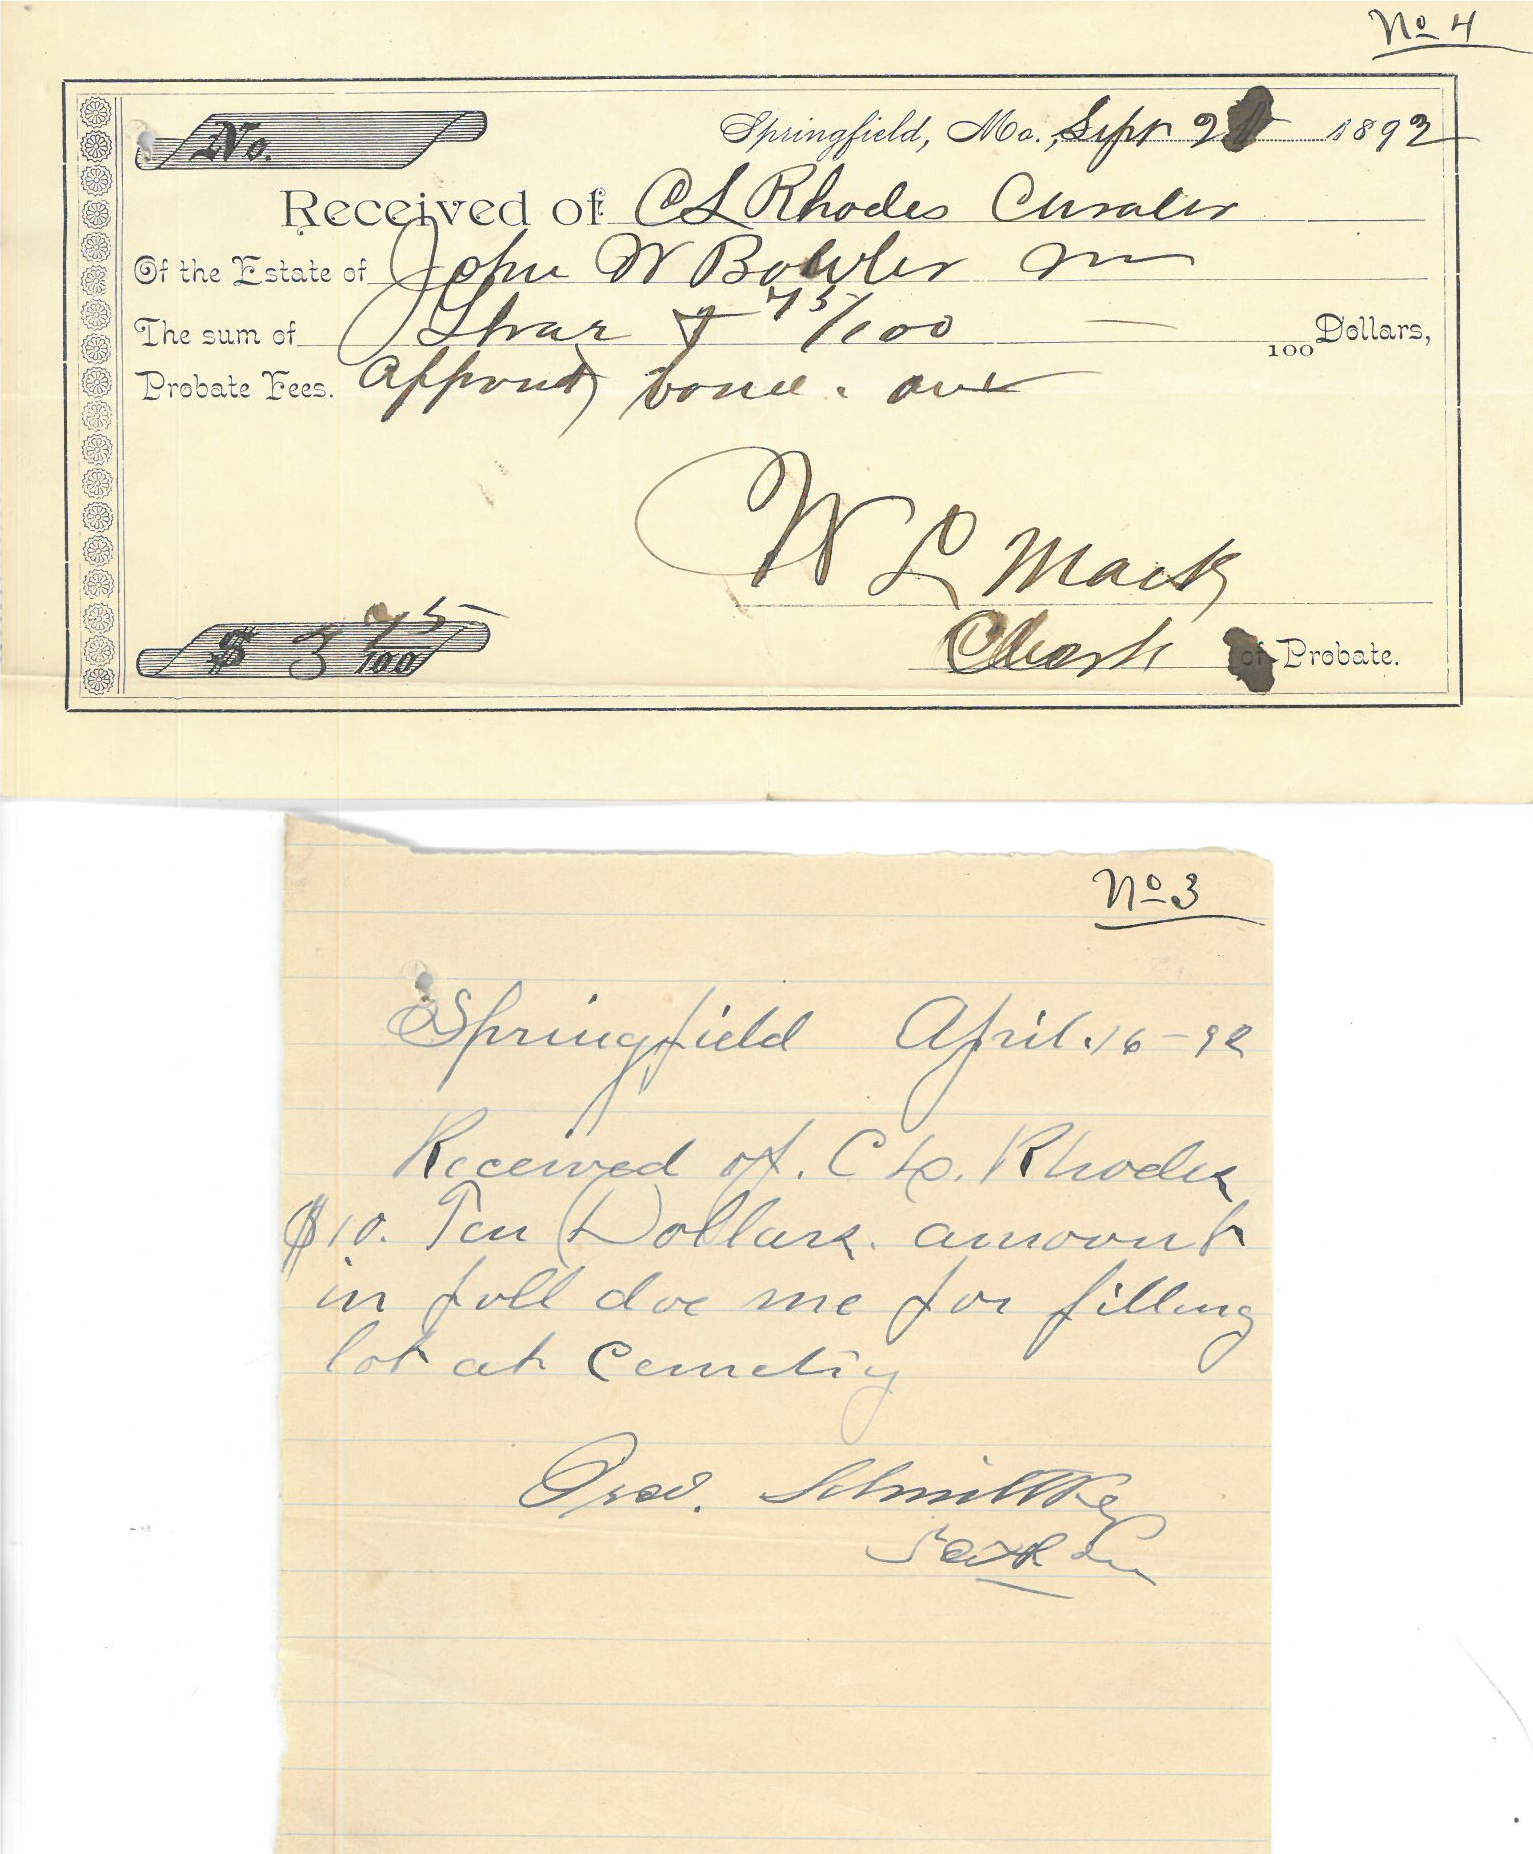 No 4
No.
Springfield, Mo., Sept 2 1892
Received of C L Rhodes Curator
Of the Estate of John W Bowler
The sum of Three & 75/100 100 Dollars,
Probate Fees.
W L Mack
$ 3 75/100
Clerk of Probate.
No 3
Springfield April. 16 - 92
Received of. C L. Rhodes
$10. Ten Dollars. amount
in full due me for filling
lot at Cemetry
Schmittke
Sexton